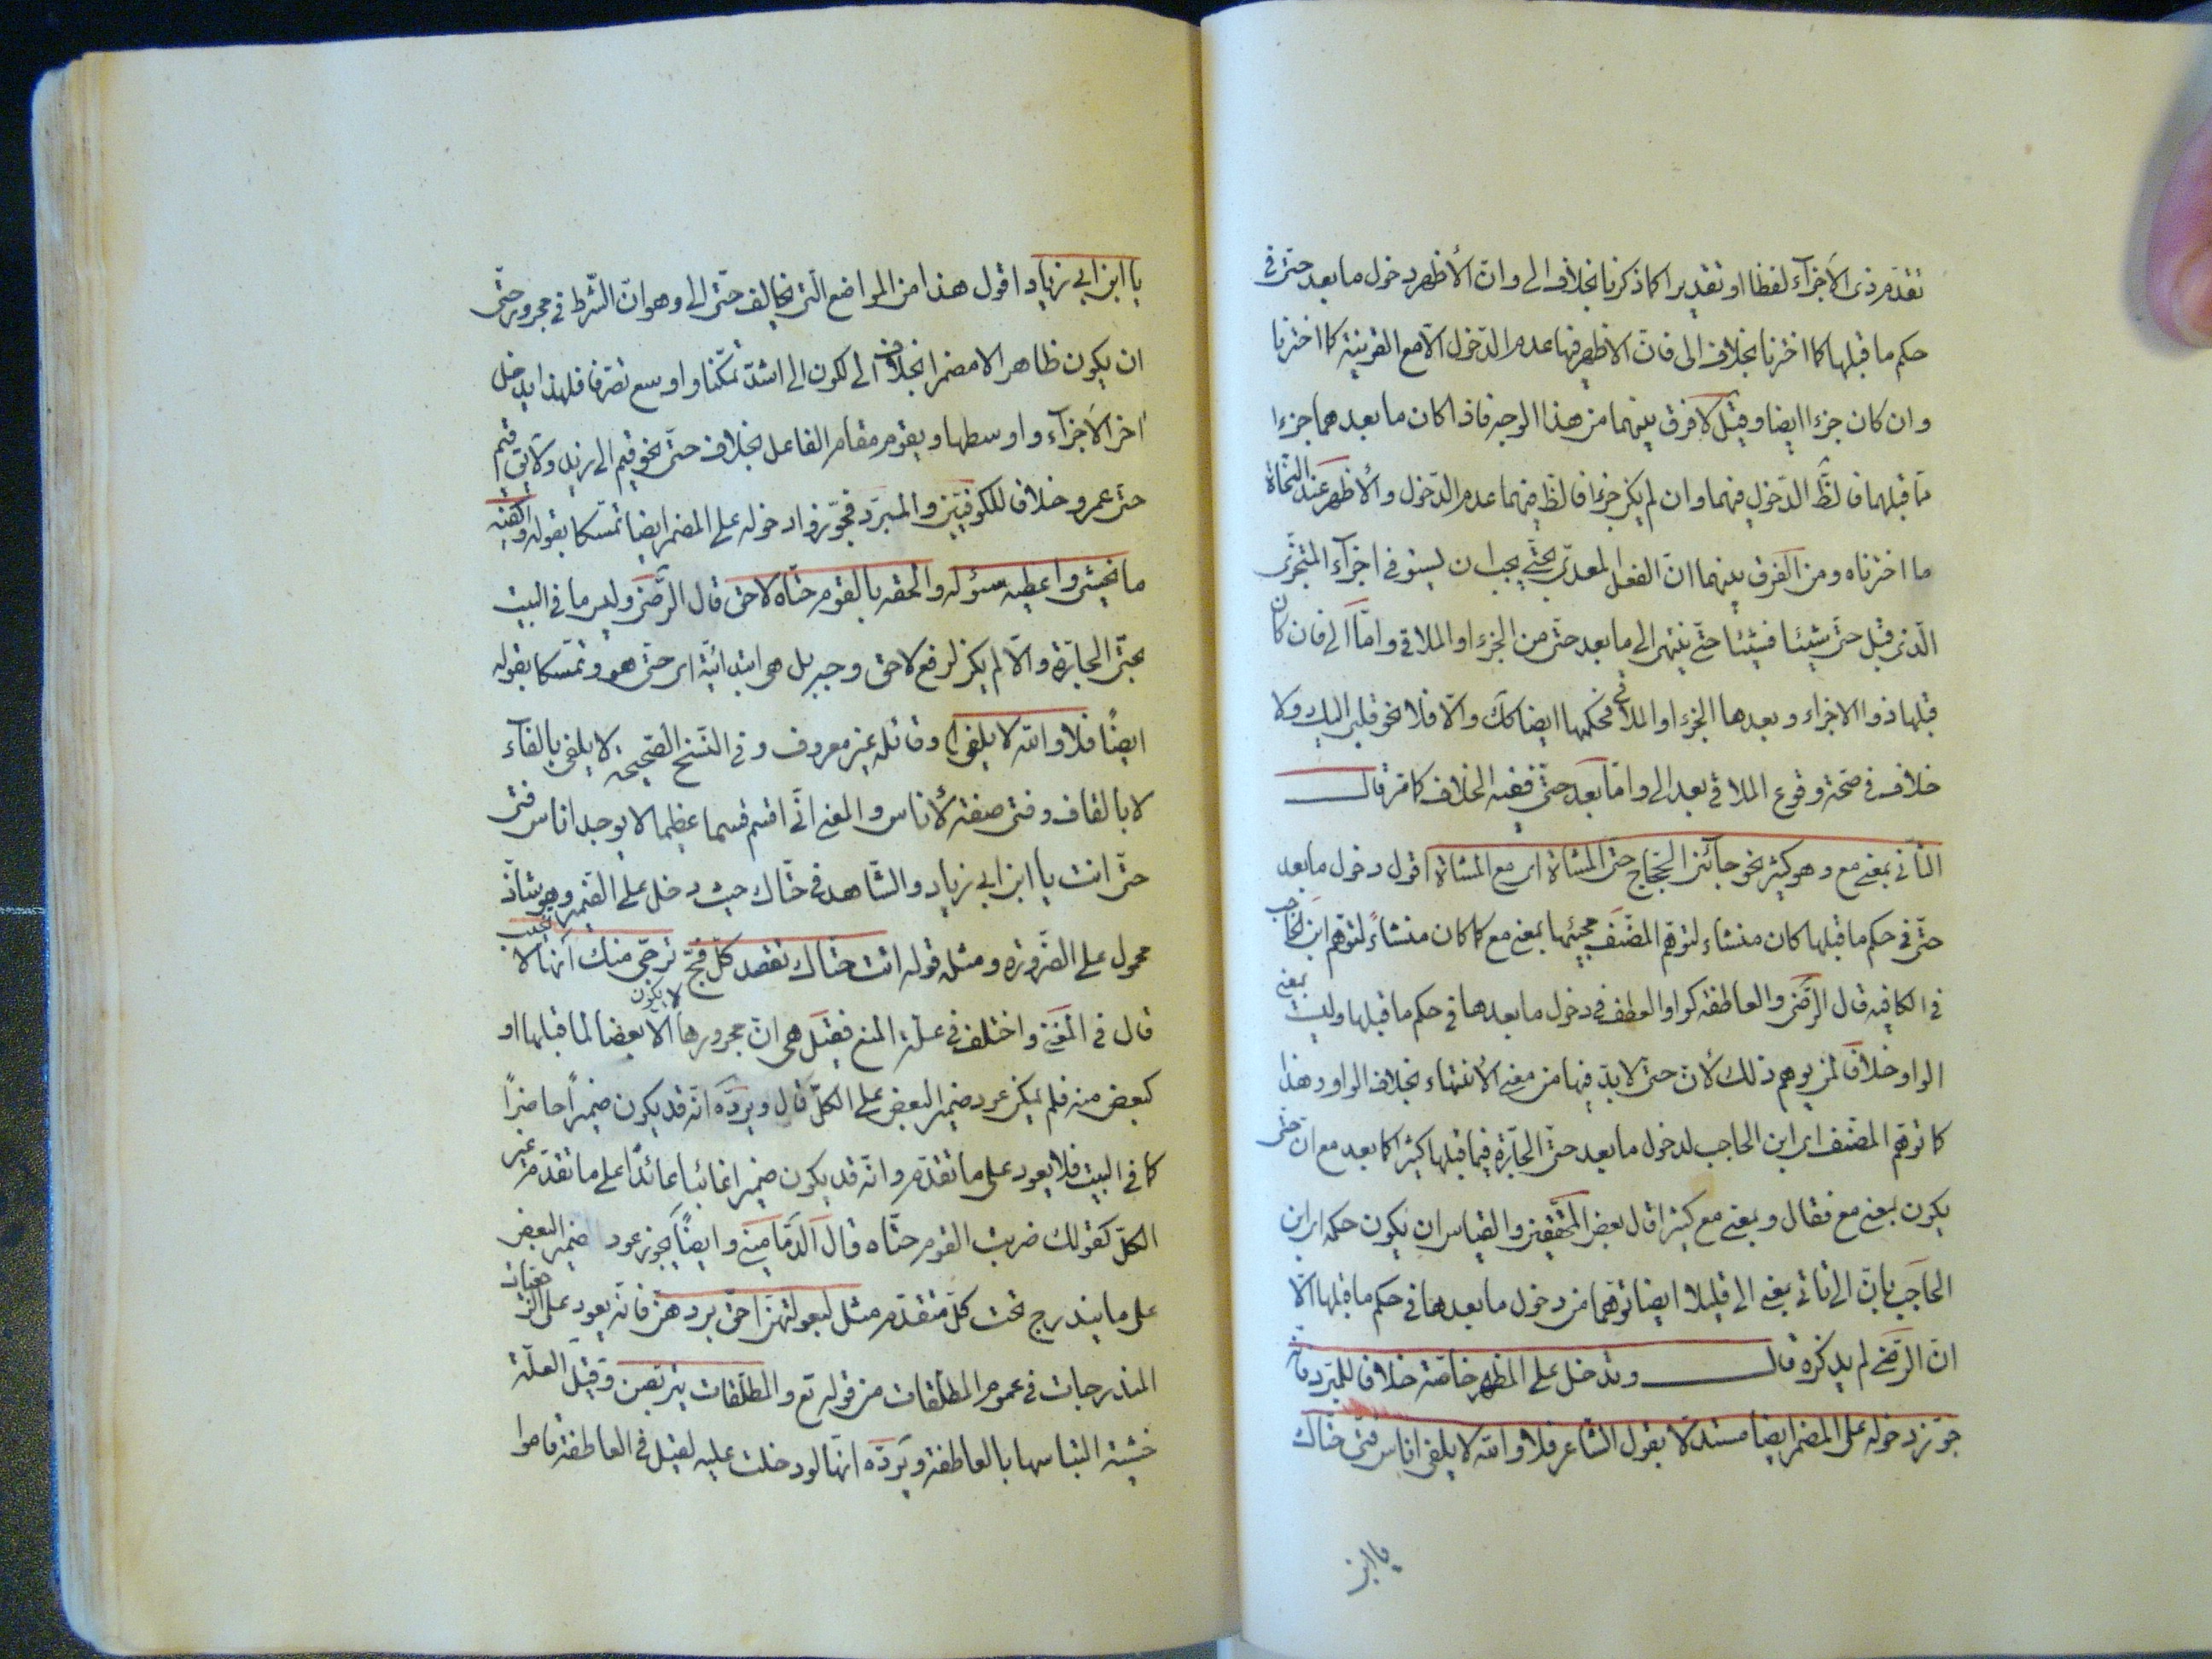 تقدّم ذى الاجزاء لفظا او تقديرا كما ذكرنا بخلاف الى وانّ الأظهر دخول ما بعد حتّى فى
حكم ما قبلها كما اخترنا بخلاف الى فانّ الاظهر فيها عدم الدّخول الّا مع القرينة كما اخترنا
وان كان جزءا ايضا وقيل لا فرق بينهما من هذا الوجه فاذا كان ما بعدهما جزءا
ممّا قبلهما فالظّ الدّخول فيهما وان لم يكن جزءا فالظّ فيهما عدم الدّخول والأظهر عند النّحاة
ما اخترناه ومن الفرق بينهما انّ الفعل المعدّى بحتّى يجب ان يستوفى اجزاء المتجزّى
الّذى قبل حتّى شيئا فشيئا حتّى ينتهى الى ما بعد حتّى من الجزء او الملاقى وامّا الى فان كان
قبلها ذو الاجزاء وبعدها الجزء او الملاقى فحكمها ايضا كك والّا فلا نحو قلبى اليك ولا
خلاف فى صحّة وقوع الملاقى بعد الى وامّا بعد حتّى ففيه الخلاف كما مرّ قال
الثانى بمعنى مع وهو كثير نحو جائنى الحجّاج حتّى المشاة اى مع المشاة اقول دخول ما بعد
حتّى فى حكم ما قبلها كان منشاء لتوهّم المصنّف مجيئها بمعنى مع كما كان منشاءً لتوهّم ابن الحاجب
فى الكافيه قال الرّضى والعاطفة كواو العطف فى دخول ما بعدها فى حكم ما قبلها وليست بمعنى
الواو خلافا لمن يوهم ذلك لأنّ حتى لا بدّ فيها من معنى الانتهاء بخلاف الواو وهذا
كما توهّم المصنّف اى ابن الحاجب لدخول ما بعد حتّى الجارّة فيما قبلها كثيرا كما بعد مع ان حتّى
يكون بمعنى مع فقال وبمعنى مع كثيرا قال بعض المحقّقين والقياس ان يكون حكم ابن
الحاجب بانّ الى تاتى بمعنى الى قليلا ايضا توهّما من دخول ما بعدها فى حكم ما قبلها الّا
انّ الرّضى لم يذكره قال وتدخل على المظهر خاصّة خلافا للمبرّد فانّه
جوّز دخوله على المضمر ايضا مستدلّا بقول الشّاعر فلا والله لا يلفى اناس فتى حتّاك
يا ابن
يا ابن ابى زياد اقول هذا من المواضع الّتى يخالف حتّى الى وهو انّ الشّرط فى مجرور حتّى
ان يكون ظاهرا لا مضمرا بخلاف الى لكون الى اشدّ تمكّنا واوسع تصرّفا فلهذا يدخل
اخر الاجزاء واوسطها ويقوم مقام الفاعل بخلاف حتّى نحو قيم الى زيد ولا يق قيم
حتّى عمرو خلافا للكوفيّين والمبرّد فجوّزوا دخوله على المضمر ايضا تمسّكا بقوله واكفيه
ما يخشى واعطيه سؤله والحقه بالقوم حتّاه لاحق قال الرّضى وليس ما فى البيت
بحتّى الجارّة والّا لم يكن لرفع لاحق وجه بل هى ابتدائيّة اى حتّى هو وتمسّكا بقوله
ايضًا فلا والله لا يلفى وقائله غير معروف وفى النّسخ الصّحيحه لا يلفى بالفآء
لا بالقاف وفتى صفة لأناس والمعنى انّى اقسم قسما عظيما لا يوجد اناس فتى
حتّى انت يا ابن ابى زياد والشّاهد فى حتّاك حيث دخل على الضّمير وهو شاذّ
محمول على الضّرورة ومثله قوله اتت حتّاك تقصد كلّ فجّ ترجّى منك انّها لا تخيب
قال فى المغنى واختلف فى علّة المنع فقيل هى انّ مجرورها لا يكون الّا بعضا لما قبلها او
كبعض منه فلم يمكن عود ضمير البعض على الكلّ قال ويردّه انّه قد يكون ضميرًا حاضرًا
كما فى البيت فلا يعود على ما تقدّم وانّه قد يكون ضميرا غائبا عائدًا على ما تقدّم غير
الكلّ كقولك ضربت القوم حتّاه قال الدّمامينى وايضًا يجوز عود ضمير البعض
على ما يندرج تحت كلّ متقدّم مثل لبعولتهنّ احقّ بردّهنّ فانّه يعود على الرّجعيّات
المندرجات فى عموم المطلّقات من قوله تع والمطلّقات يتربّصن وقيل العلّة
خشية التباسها بالعاطفة ويردّه انّها لو دخلت عليه لقيل فى العاطفة قاموا